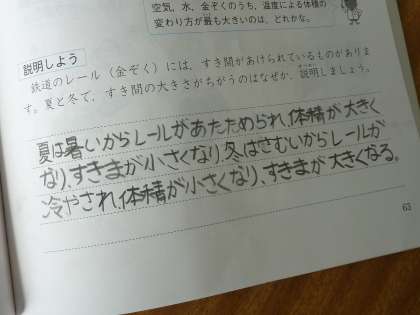 空気、水、金ぞくのうち、温度による体積の
変わり方が最も大きいのは、どれかな。
説明しよう
鉄道のレール（金ぞく）には、すき間があけられているものがありま
す。夏と冬で、すき間の大きさがちがうのはなぜか、説明しましょう。
夏は暑いからレールがあたためられ、体積が大きく
なり、すきまが小さくなり、冬はさむいからレールが
冷やされ、体積が小さくなり、すきまが大きくなる。
63